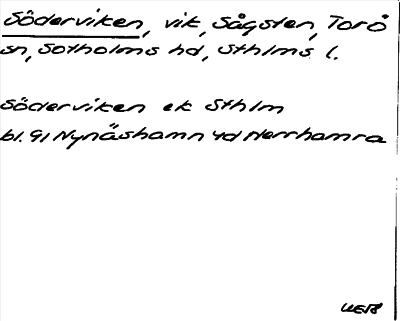 Söderviken, vik, Sågsten, Torö
sn, Sotholms hd, Sthlms l.
Söderviken ek Sthlm
bl. 91 Nynäshamn 4d Herrhamra
WEB